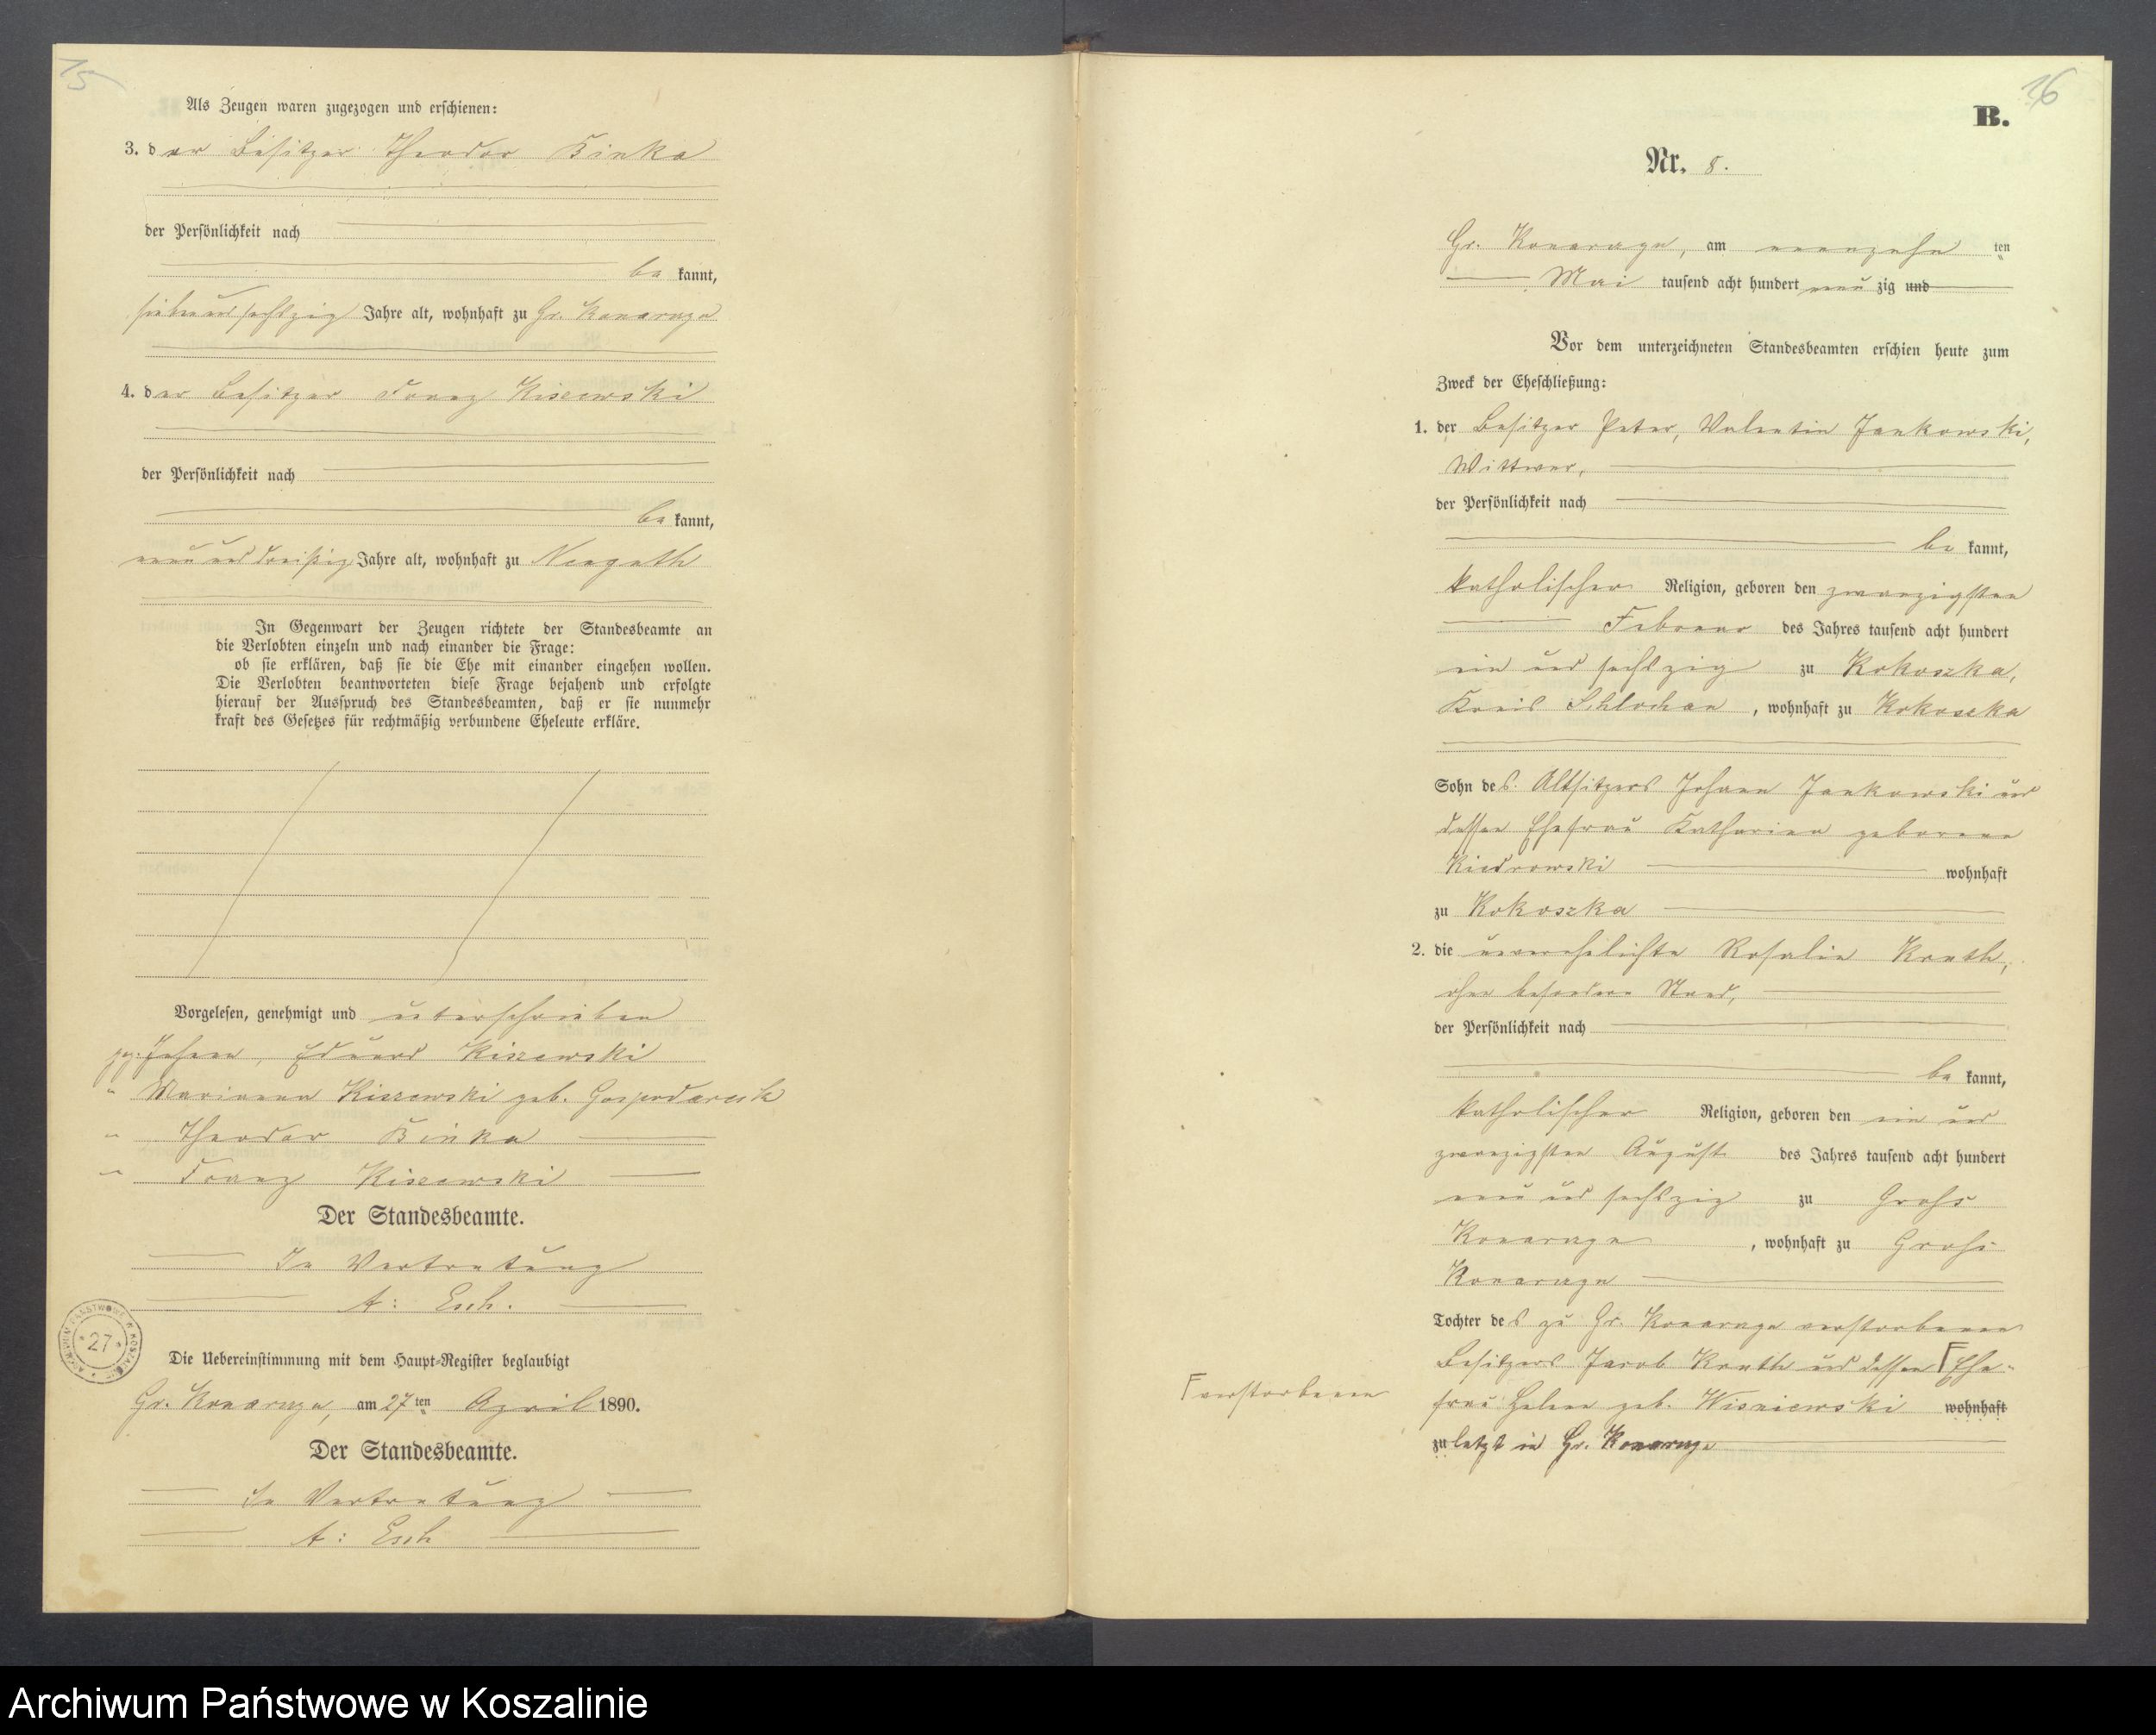 15
Als Zeugen waren zugezogen und erschienen:
3. der Besitzer Theodor Binka
der Persönlichkeit nach
be kannt,
sieben und sechszig Jahre alt, wohnhaft zu Gr. Konarczyn
4. der Besitzer Franz Kiszewski
der Persönlichkeit nach
be kannt,
neun und dreißig Jahre alt, wohnhaft zu Neeguth
In Gegenwart der Zeugen richtete der Standesbeamte an
die Verlobten einzeln und nach einander die Frage:
ob sie erklären, daß sie die Ehe mit einander eingehen wollen.
Die Verlobten beantworteten diese Frage bejahend und erfolgte
hierauf der Ausspruch des Standesbeamten, daß er sie nunmehr
kraft des Gesetzes für rechtmäßig verbundene Eheleute erkläre.
Vorgelesen, genehmigt und unterschrieben
gez: Johann, Eduard Kiszewski
" Marianna Kiszewski geb. Gospodareck
" Theodor Binka
" Franz Kiszewski
Der Standesbeamte.
In Vertretung
A: Esch.
27
Die Uebereinstimmung mit dem Haupt-Register beglaubigt
Gr. Konarczyn, am 27 ten April 1890.
Der Standesbeamte.
In Vertretung
A: Esch
16
B.
Nr. 8.
Gr. Konarczyn, am neunzehn ten
Mai tausend acht hundert neun zig und
Vor dem unterzeichneten Standesbeamten erschien heute zum
Zweck der Eheschließung:
1. der Besitzer Peter, Valentin Jankowski,
Wittwer,
der Persönlichkeit nach
be kannt,
katholischer Religion, geboren den zwanzigsten
Februar des Jahres tausend acht hundert
ein und sechszig zu Kokoszka,
Kreis Schlochau, wohnhaft zu Kokoszka
Sohn des Altsitzers Johann Jankowski und
dessen Ehefrau Katharina geborene
Kiedrowski wohnhaft
zu Kokoszka
2. die unverehelichte Rosalie Knuth,
ohne besonderen Stand,
der Persönlichkeit nach
be kannt,
katholischer Religion, geboren den ein und
zwanzigsten August des Jahres tausend acht hundert
neun und sechszig zu Grohs
Konarczyn, wohnhaft zu Grohs
Konarczyn
Tochter des zu Gr. Konarczyn verstorbenen
Besitzers Jacob Knuth und dessen Γ Ehe-
Γ verstorbenen
frau Helene geb. Wisniewski wohnhaft
zu letzt in Gr. Konarczyn
Archiwum Państwowe w Koszalinie